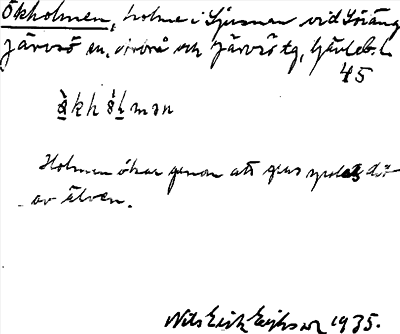 Ökholmen, holme i Ljusnan vid Söräng
Järvsö sn, och Järvsö tg, Gävleb. L
45
ökhòlmən
Holmen ökar genom att grus spolas dit
av älven.
Nils Erik Eriksson 1935.